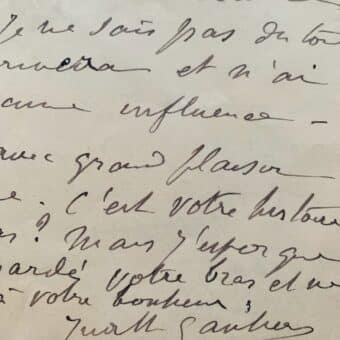 Je ne sais pas du tou
et n'ai
aucune influence -
avec grand plaisir
. C'est votre histoire
? Mais j'espère que
gardé votre bras et ne
à votre bonheur,
Judith Gautier